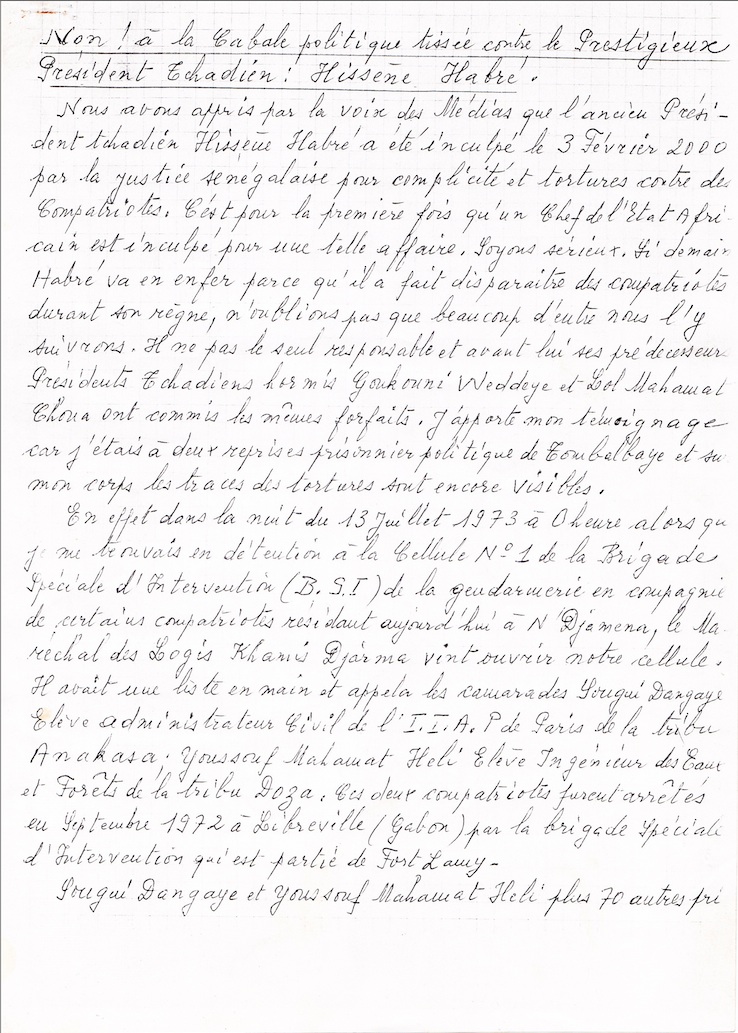 Non ! à la Cabale politique tissée contre le Prestigieux
Président Tchadien : Hisseñe Habré.
Nous avons appris par la voix des Médias que l'ancien Prési-
dent tchadien Hisseñe Habré a été inculpé le 3 Février 2000
par la justice sénégalaise pour complicité et tortures contre des
Compatriotes. C'est pour la première fois qu'un Chef de l'Etat Afri-
cain est inculpé pour une telle affaire. Soyons sérieux. Si demain
Habré va en enfer parce qu'il a fait disparaître des compatriotes
durant son règne, n'oublions pas que beaucoup d'entre nous l'y
suivrons. Il ne pas le seul responsable et avant lui ses prédecesseurs
Présidents Tchadiens hormis Goukouni Weddeye et Lol Mahamat
Choua ont commis les mêmes forfaits. J'apporte mon témoignage
car j'étais à deux reprises prisonnier politique de Tombalbaye et su
mon corps les traces des tortures sont encore visibles.
En effet dans la nuit du 13 Juillet 1973 à 0 heure alors qu
je me trouvais en détention à la Cellule Nº 1 de la Brigade
Spéciale d'Intervention (B.S.I) de la gendarmerie en compagnie
de certains compatriotes résidant aujourd'hui à N'Djamena, le Ma
réchal des Logis Khamis Djarma vint ouvrir notre cellule.
Il avait une liste en main et appela les camarades Sougui Dangaye
Elève administrateur Civil de l'I.I.A.P de Paris de la tribu
Anakasa. Youssouf Mahamat Heli Elève Ingénieur des Eaux
et Forêts de la tribu Doza. Ces deux compatriotes furent arrêtés
en Septembre 1972 à Libreville (Gabon) par la brigade Spéciale
d'Intervention qui est partie de Fort Lamy-
Sougui Dangaye et Youssouf Mahamat Heli plus 70 autres pri